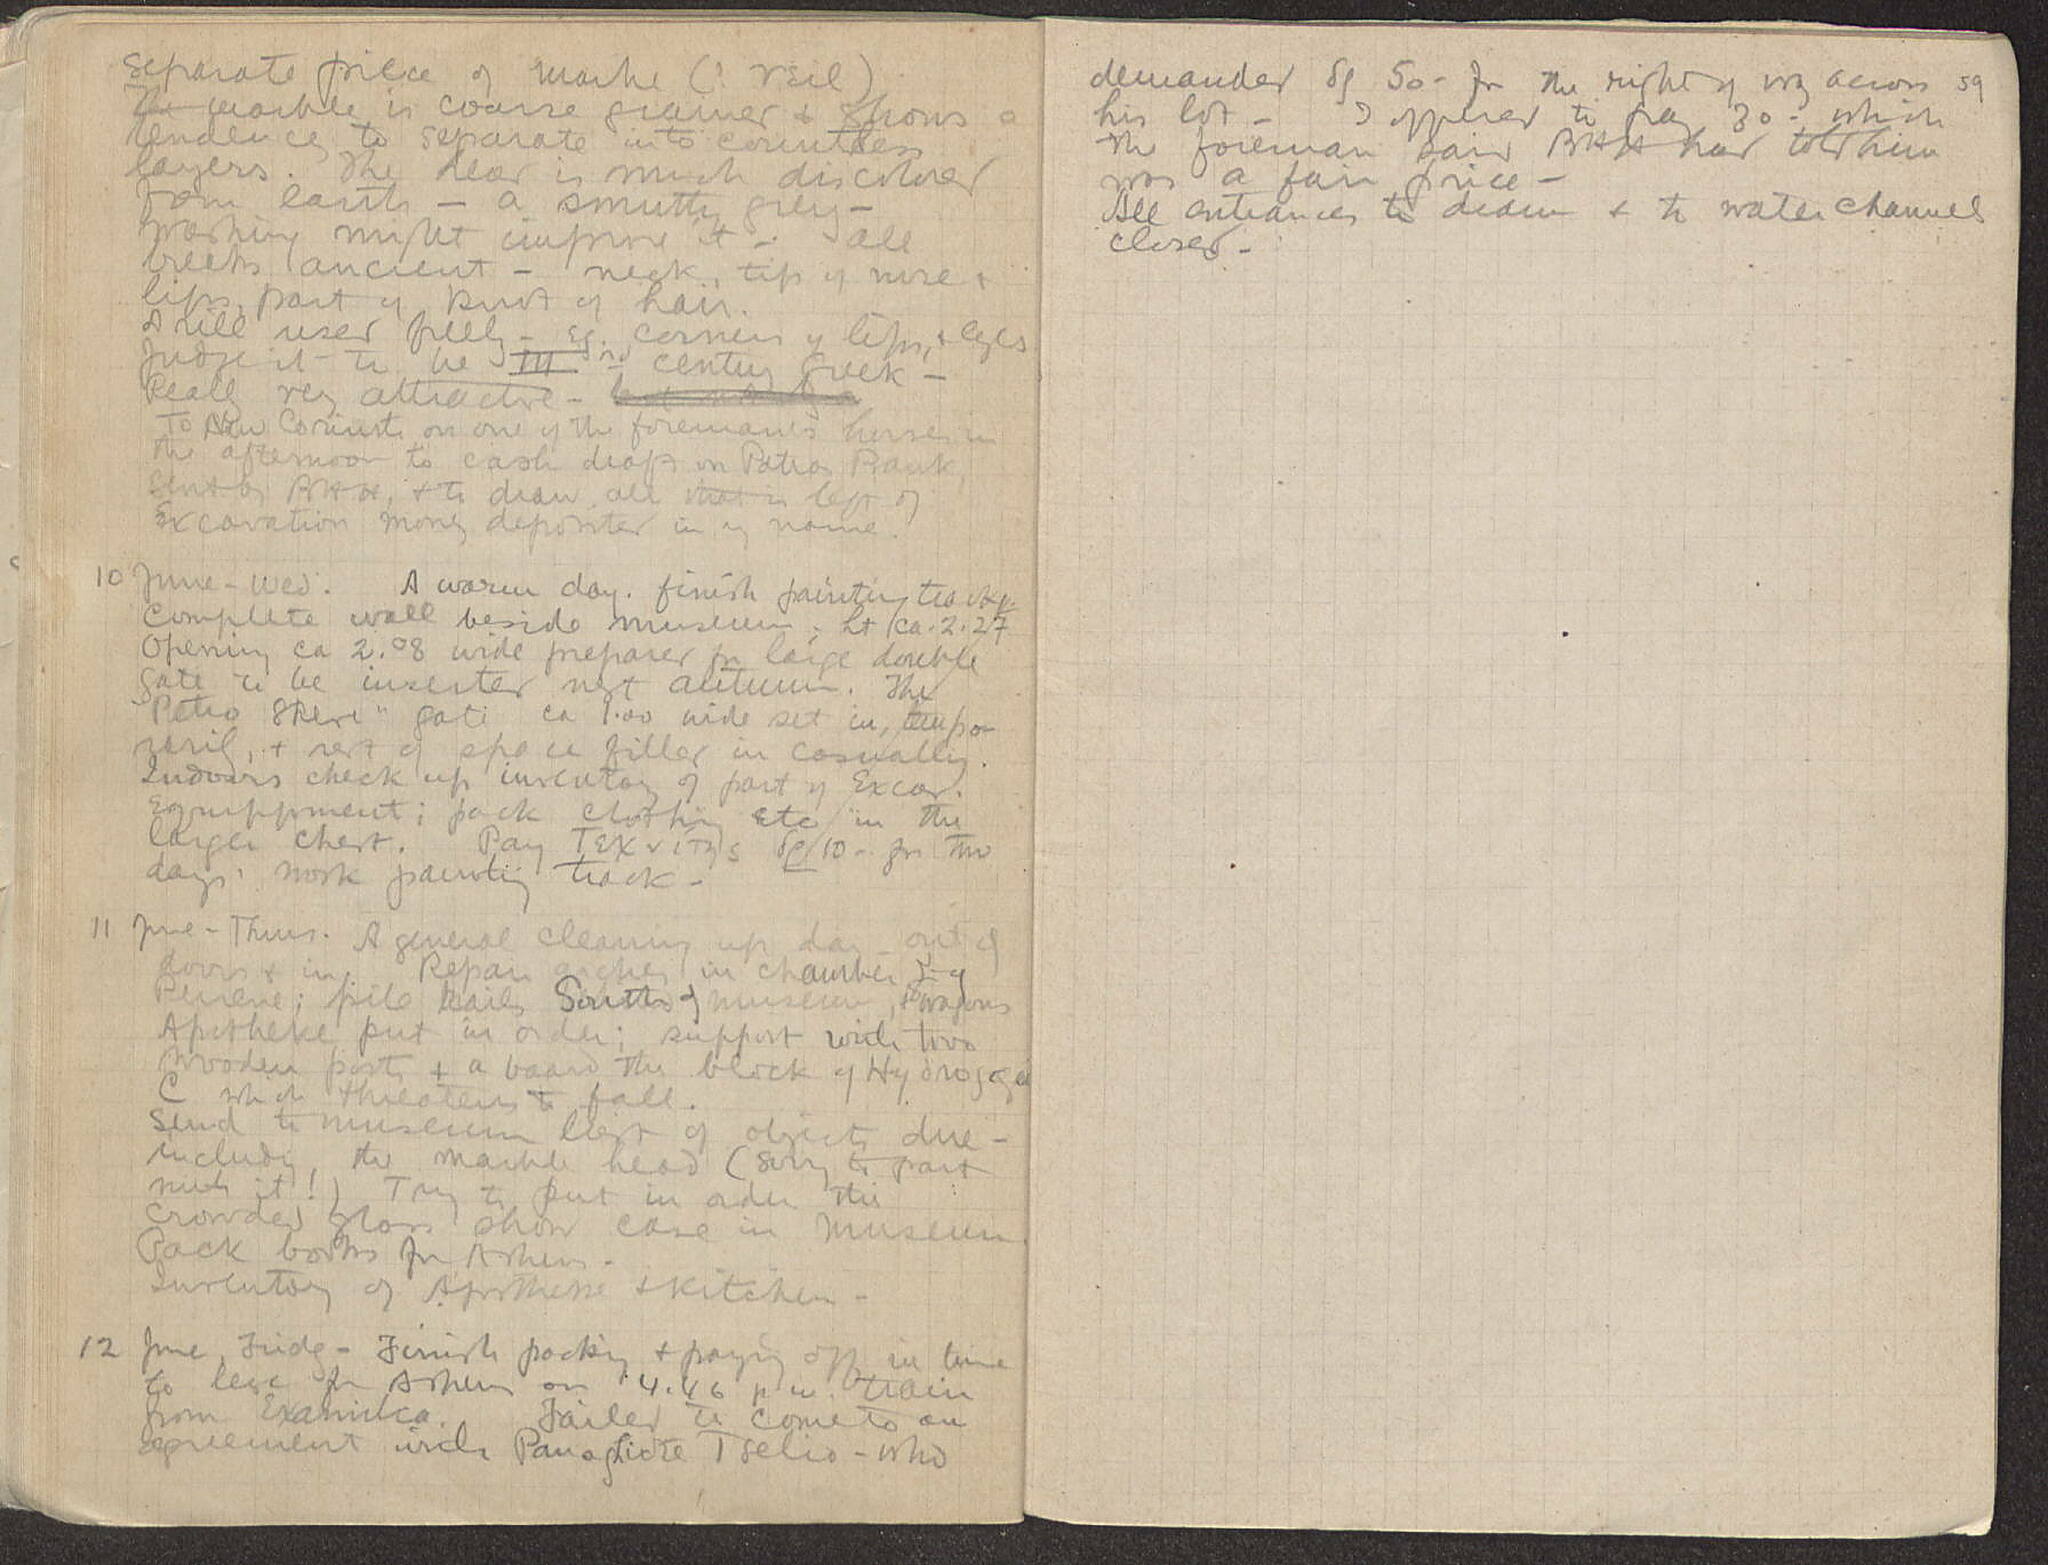 separate piece of marble (? veil)
The marble is coarse grained & shows a
tendency to separate into countless
layers. The head is much discolored
from earth – a smutty grey –
Washing might improve it – all
breaks ancient – neck, tip of nose &
lips, part of knot of hair.
Drill used freely – eg. corners of lips, & eyes
Judge it to be III century Greek –
Really very attractive –
To New Corinth on one of the foreman's horses in
the afternoon to cash draft on Patras Bank,
sent by BHH, & to draw all that is left of
Excavation money deposited in my name.
10 June – Wed. A warm day. finish painting track.
Complete wall beside museum; ht ca. 2.27
Opening ca 2.08 wide prepared for large double
gate to be inserted next autumn. The
"Petro Skeri" gate ca 1.00 wide set in, tempo-
rarily, & rest of space filled in casually.
Indoors check up inventory of part of Excav.
Equippment; pack clothing etc in the
larger chest. Pay dr 10 – for two
days' work painting track –
11 June – Thurs. A general cleaning up day – out of
doors & in. Repair arches in chamber of
Peirene; pile rails South of museum, & wagons
Apotheke put in order; support with two
wooden posts & a board the block of Hydragogeia
C which threatens to fall.
Send to museum list of objects due –
including the marble head (Sorry to part
with it!) Try to put in order the
crowded glass show case in museum.
Pack books for Athens –
Inventory of Apotheke & Kitchen –
12 June, Friday – Finish packing & paying off in time
to leave for Athens on 4.46 p.m. train
from Examilia. Failed to come to an
agreement with Panagiote Tselio – who
demanded dr 50 – for the right of way across 59
his lot – I offered to pay 30 – which
the foreman said BHH had told him
was a fair price –
All entrances to drain & to water channel
closed –